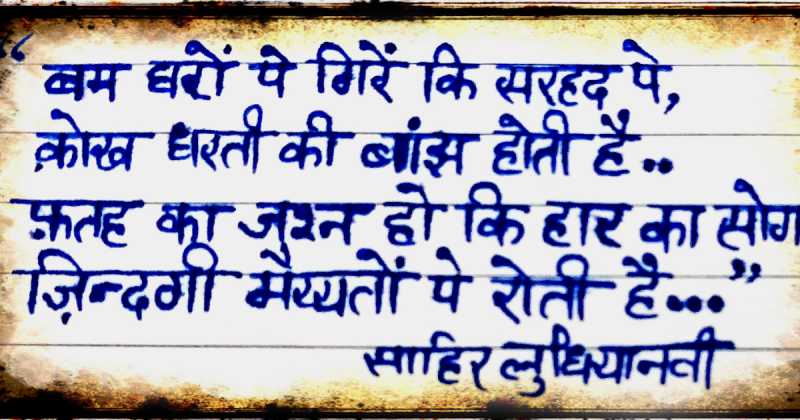 “बम घरों पे गिरें कि सरहद पे,
क़ोख धरती की बांझ होती है..
फ़तह का जश्न हो कि हार का सोग
ज़िन्दगी मैय्यतों पे रोती है...”
साहिर लुधियानवी